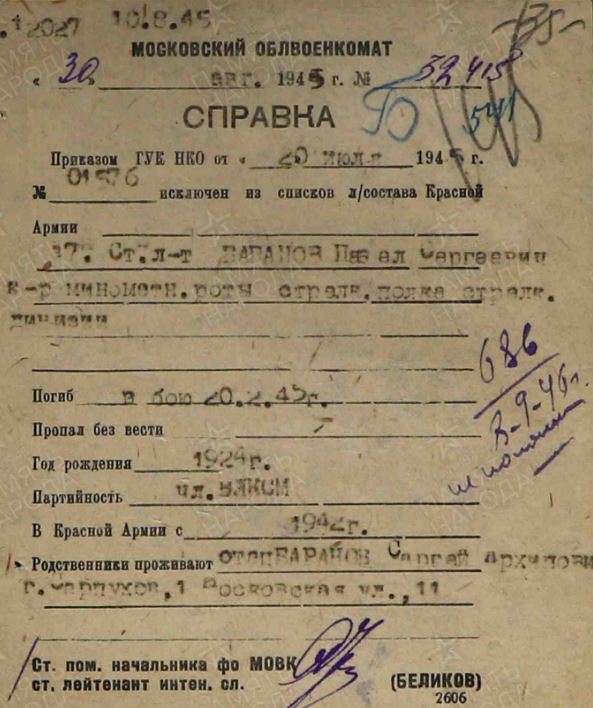 2027 10.8.45
МОСКОВСКИЙ ОБЛВОЕНКОМАТ
« 30 авг. 1945 г. № 32415
СПРАВКА
541
Приказом ГУК НКО от « 20 июля 1945 г.
№ 01576 исключен из списков л/состава Красной
Армии
17. Ст.л-т БАРАНОВ Павел Сергеевич
к-р минометн.роты стрелк.полка стрелк.
дивизии
686
Погиб в бою 20.2.45г.
3-9-46г.
Пропал без вести
Год рождения 1924г.
Партийность чл.ВЛКСМ
В Красной Армии с 1942г.
Родственники проживают отец БАРАНОВ Сергей Архипови
г.Серпухов,1 Московская ул.,11
Ст. пом. начальника фо МОВК
ст. лейтенант интен. сл. (БЕЛИКОВ)
2606